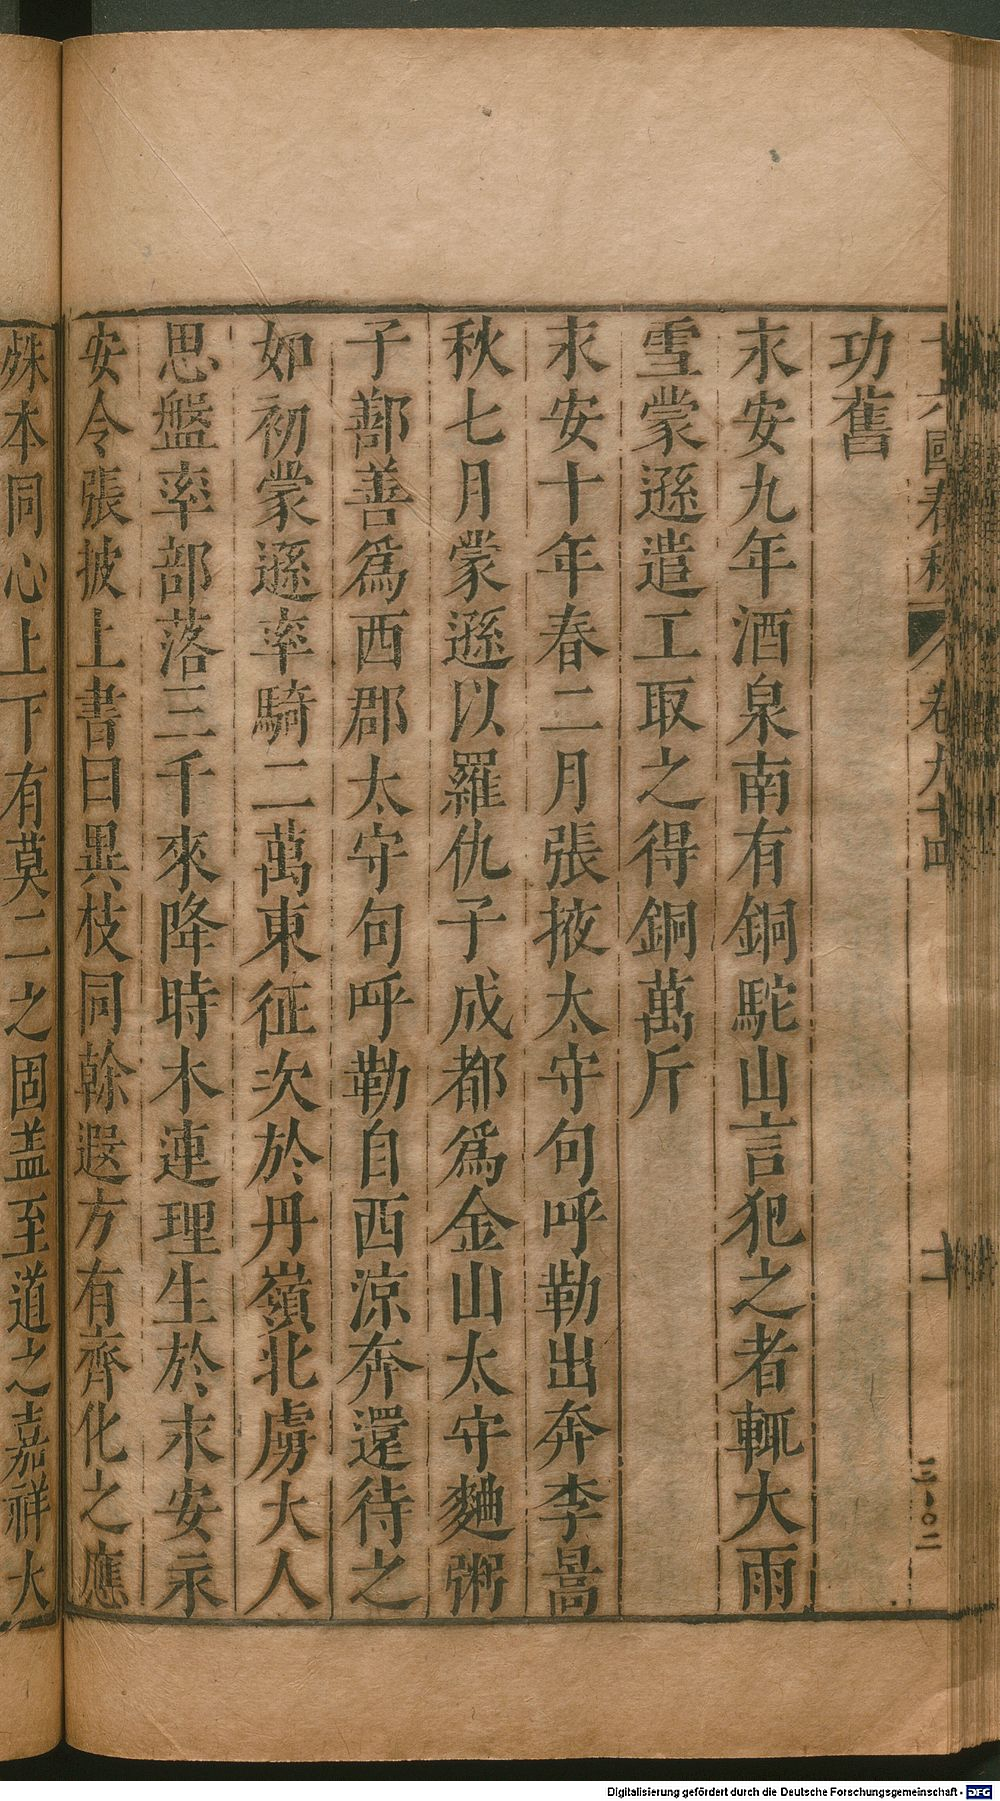 十六國春秋 卷九十四 十一 三一〇二
功舊
永安九年酒泉南有銅駝山言犯之者輒大雨
雪蒙遜遣工取之得銅萬斤
永安十年春二月張掖太守句呼勒出奔李暠
秋七月蒙遜以羅仇子成都爲金山太守麴粥
子鄯善爲西郡太守句呼勒自西涼奔還待之
如初蒙遜率騎二萬東征次於丹嶺北虜大人
思盤率部落三千來降時木連理生於永安永
安令張披上書曰異枝同幹遐方有齊化之應
殊本同心上下有莫二之固盖至道之嘉祥大
Digitalisierung gefördert durch die Deutsche Forschungsgemeinschaft - DFG